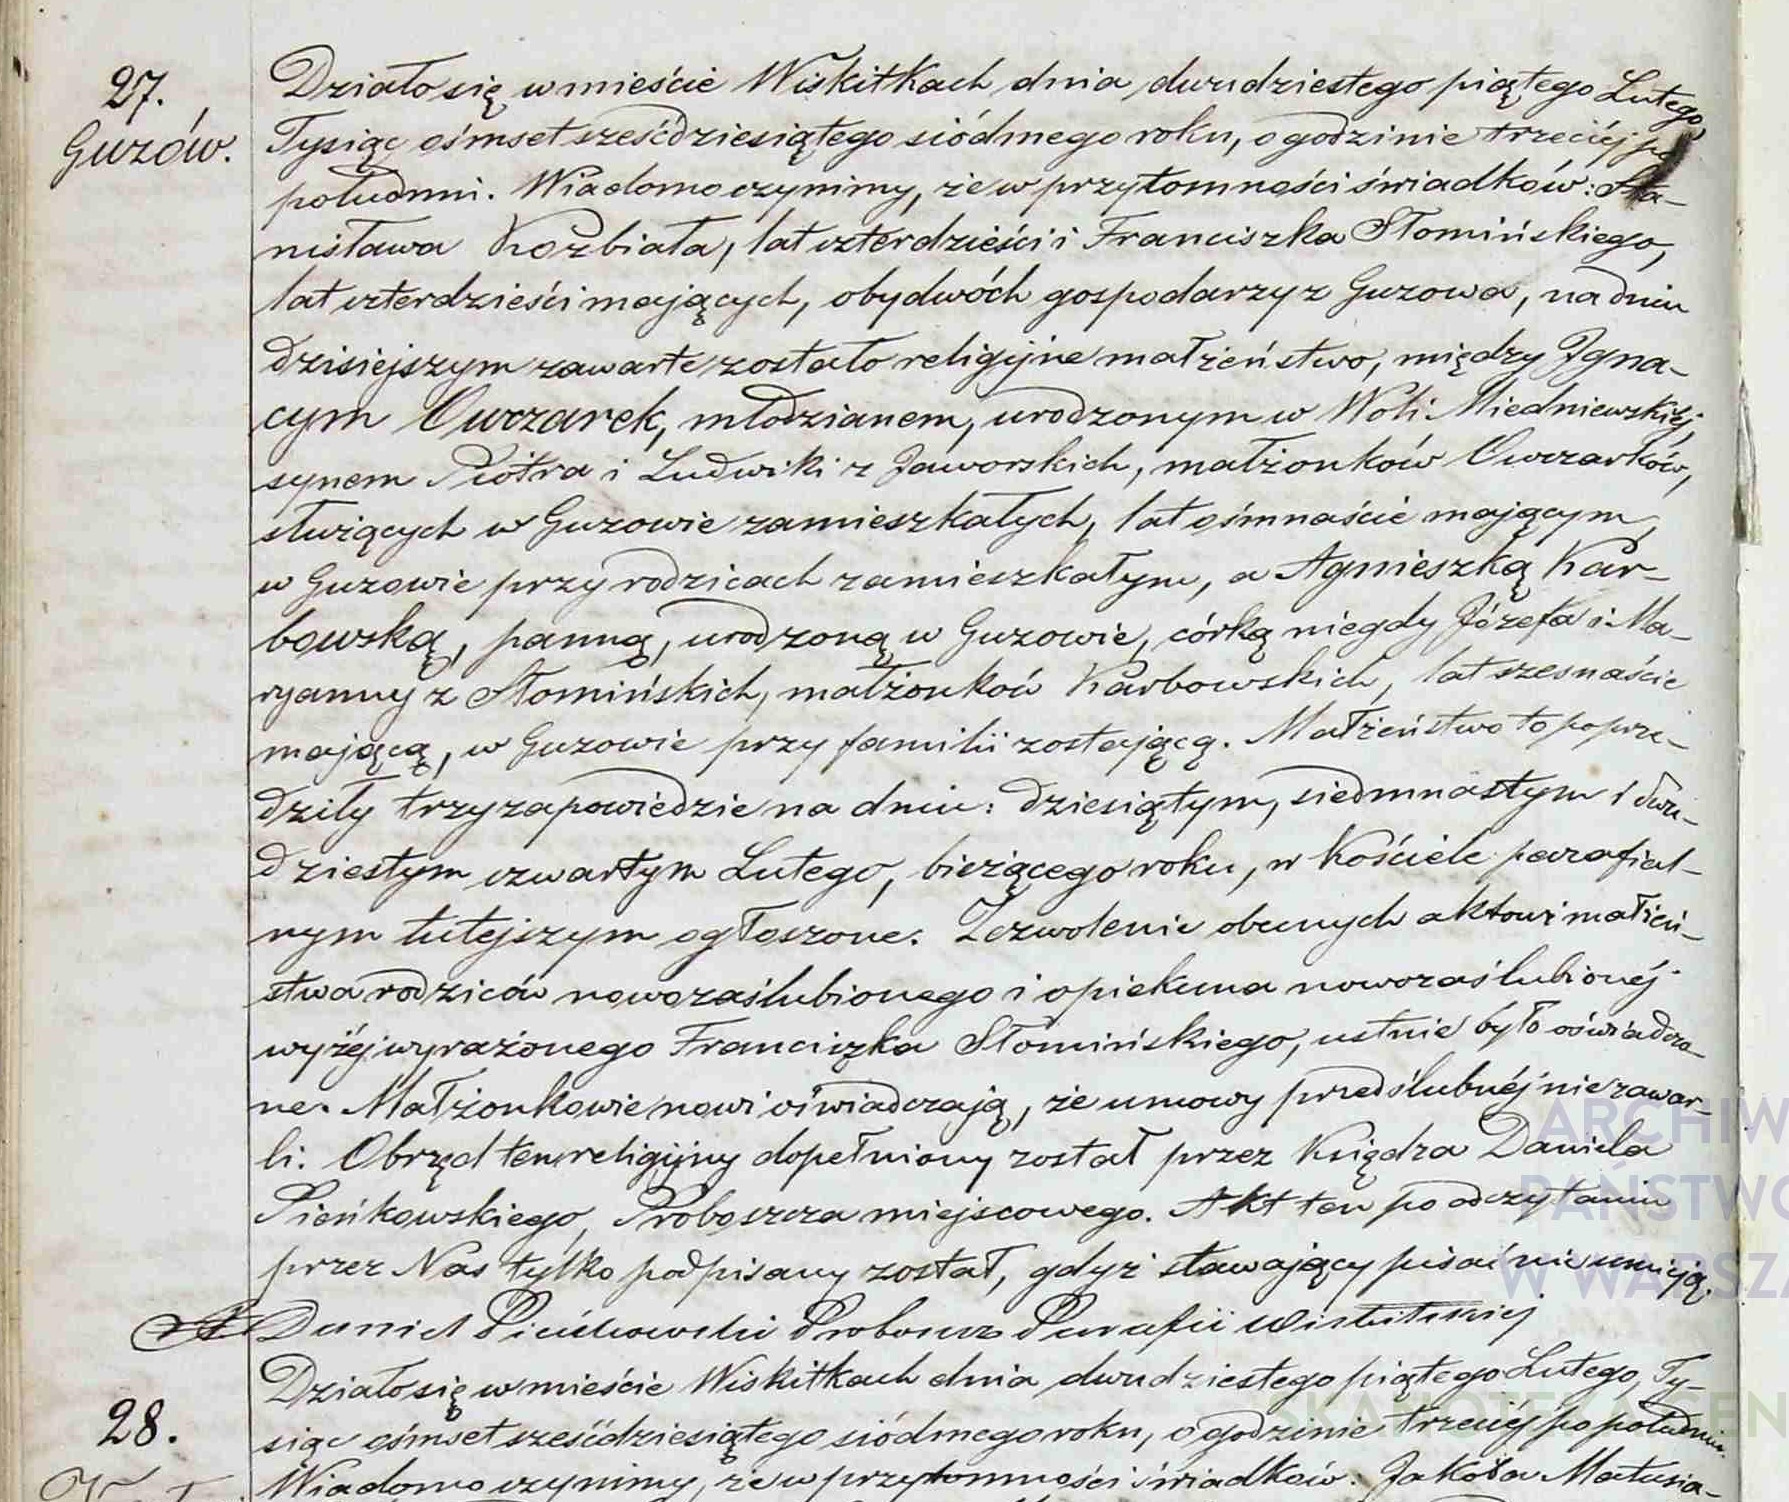 27.
Guzów.
Działo się w mieście Wiskitkach dnia dwudziestego piątego Lutego,
Tysiąc ośmset sześćdziesiątego siódmego roku, o godzinie trzeciéj po
południu. Wiadomo czynimy, że w przytomności świadków: Sta-
nisława Kozbiała, lat czterdzieści i Franciszka Słomińskiego,
lat czterdzieści mających, obydwóch gospodarzy z Guzowa, na dniu
dzisiejszym zawarte zostało religijne małżeństwo, między Igna-
cym Owczarek, młodzianem, urodzonym w Woli Miedniewskiéj,
synem Piotra i Ludwiki z Jaworskich, małżonków Owczarków,
służących w Guzowie zamieszkałych, lat ośmnaście mającym,
w Guzowie przy rodzicach zamieszkałym, a Agnieszką Kar-
bowską, panną, urodzoną w Guzowie, córką niegdy Józefa i Ma-
ryanny z Słomińskich, małżonków Karbowskich, lat szesnaście
mającą, w Guzowie przy familii zostającą. Małżeństwo to poprze-
dziły trzy zapowiedzie na dniu: dziesiątym, siedmnastym i dwu-
dziestym czwartym Lutego, bieżącego roku, w Kościele parafial-
nym tutejszym ogłoszone. Zezwolenie obecnych aktowi małżeń-
stwa rodziców nowozaślubionego i opiekuna nowozaślubionéj
wyżéj wyrażonego Franciszka Słomińskiego, ustnie było oświadczo-
ne. Małżonkowie nowi oświadczają, że umowy przedślubnéj nie zawar-
li. Obrzęd ten religijny dopełniony został przez Księdza Daniela
Pieńkowskiego, Proboszcza miejscowego. Akt ten po odczytaniu
przez Nas tylko podpisany został, gdyż stawający pisać nie umieją.
X Daniel Pieńkowski Proboszcz Parafii Wiskitskiej
28.
Działo się w mieście Wiskitkach dnia dwudziestego piątego Lutego, Ty-
siąc ośmset sześćdziesiątego siódmego roku, o godzinie trzeciéj po południu.
Wiadomo czynimy, że w przytomności świadków: Jakóba Matusia-
ARCHIW
PAŃSTWO
W WARSZA
SKANOTEKA